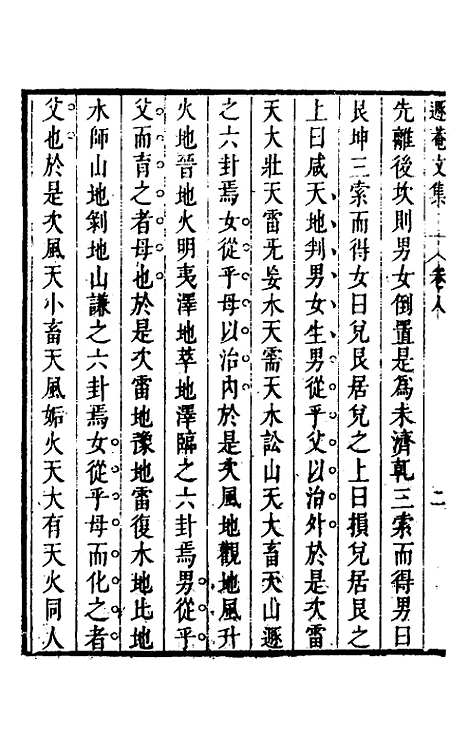 遯菴文集 卷八 二
先離後坎則男女倒置是爲未濟乾三索而得男曰
艮坤三索而得女曰兌艮居兌之上曰損兌居艮之
上曰咸天地判男女生男從乎父以治外於是次雷
天大壯天雷无妄水天需天水訟山天大畜天山遯
之六卦焉女從乎母以治內於是次風地觀地風升
火地晉地火明夷澤地萃地澤臨之六卦焉男從乎
父而育之者母也於是次雷地豫地雷復水地比地
水師山地剝地山謙之六卦焉女從乎母而化之者
父也於是次風天小畜天風姤火天大有天火同人